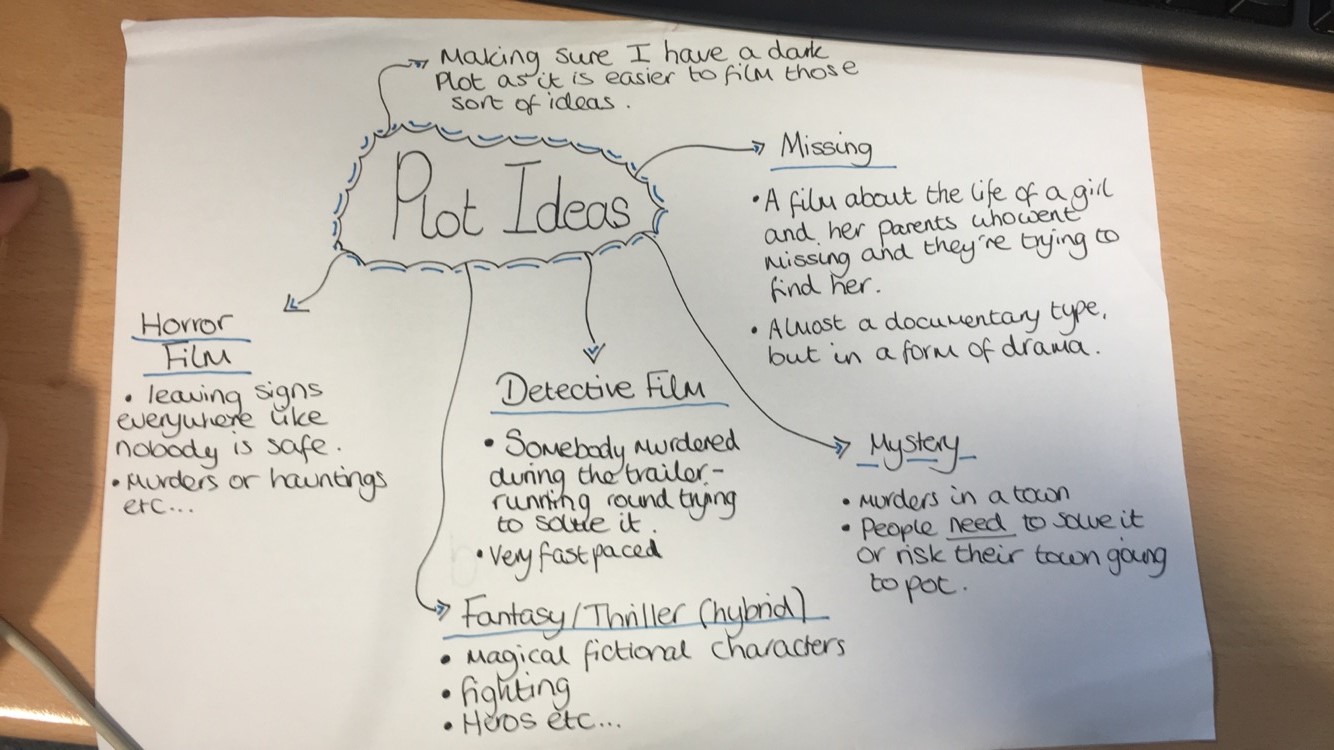 Making sure I have a dark
Plot as it is easier to film those
sort of ideas.
Plot Ideas
Missing
• A film about the life of a girl
and her parents who went
missing and they're trying to
find her.
• Almost a documentary type,
but in a form of drama.
Horror
Film
• leaving signs
everywhere like
nobody is safe.
• Murders or hauntings
etc...
Detective Film
• Somebody murdered
during the trailer -
running round trying
to solve it.
• Very fast paced
Mystery
• Murders in a town
• People need to solve it
or risk their town going
to pot.
Fantasy/Thriller (hybrid)
• Magical fictional characters
• fighting
• Heros etc...